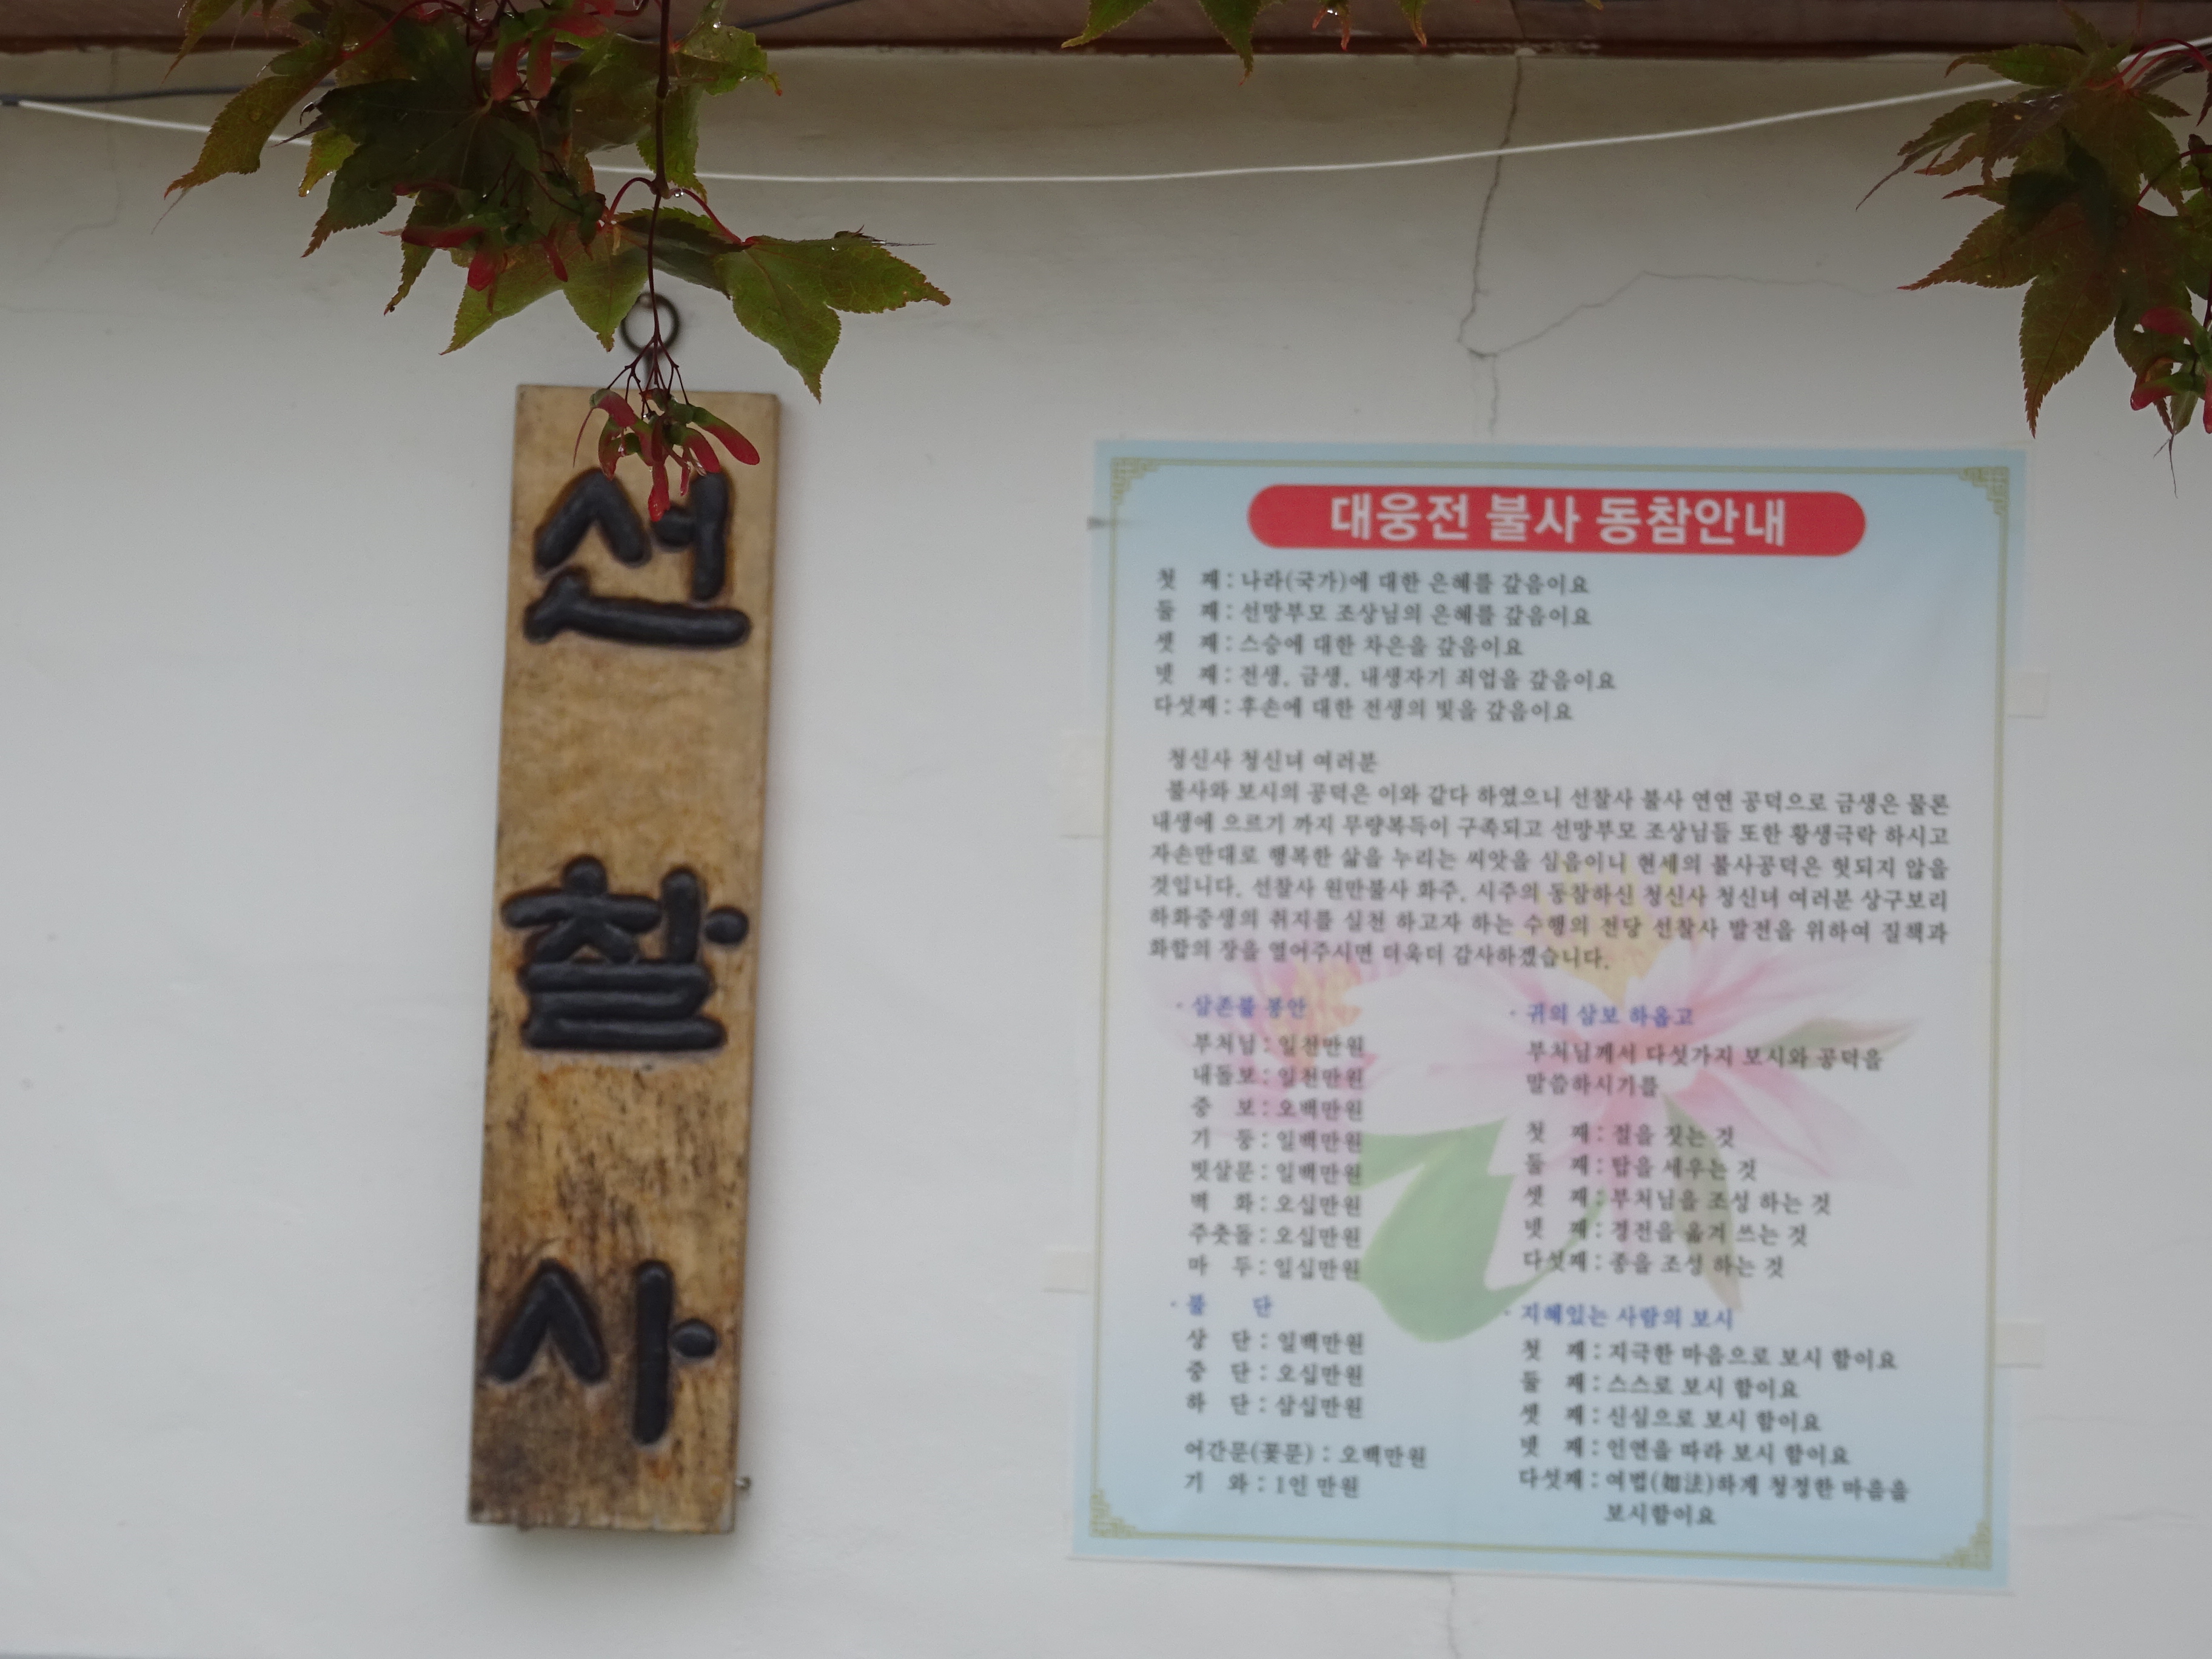 선찰사
대웅전 불사 동참안내
첫 째 : 나라(국가)에 대한 은혜를 갚음이요
둘 째 : 선망부모 조상님의 은혜를 갚음이요
셋 째 : 스승에 대한 차은을 갚음이요
넷 째 : 전생, 금생, 내생자기 죄업을 갚음이요
다섯째 : 후손에 대한 전생의 빛을 갚음이요
청신사 청신녀 여러분
불사와 보시의 공덕은 이와 같다 하였으니 선찰사 불사 연연 공덕으로 금생은 물론
내생에 으르기 까지 무량복득이 구족되고 선망부모 조상님들 또한 황생극락 하시고
자손만대로 행복한 삶을 누리는 씨앗을 심음이니 현세의 불사공덕은 헛되지 않을
것입니다. 선찰사 원만불사 화주, 시주의 동참하신 청신사 청신녀 여러분 상구보리
하화중생의 취지를 실천 하고자 하는 수행의 전당 선찰사 발전을 위하여 질책과
화합의 장을 열어주시면 더욱더 감사하겠습니다.
· 삼존불 봉안
부처님 : 일천만원
대들보 : 일천만원
중 보 : 오백만원
기 둥 : 일백만원
빗살문 : 일백만원
벽 화 : 오십만원
주춧돌 : 오십만원
마 두 : 일십만원
· 불 단
상 단 : 일백만원
중 단 : 오십만원
하 단 : 삼십만원
어간문(꽃문) : 오백만원
기 와 : 1인 만원
· 귀의 삼보 하옵고
부처님께서 다섯가지 보시와 공덕을
말씀하시기를
첫 째 : 절을 짓는 것
둘 째 : 탑을 세우는 것
셋 째 : 부처님을 조성 하는 것
넷 째 : 경전을 옮겨 쓰는 것
다섯째 : 종을 조성 하는 것
· 지혜있는 사람의 보시
첫 째 : 지극한 마음으로 보시 함이요
둘 째 : 스스로 보시 함이요
셋 째 : 신심으로 보시 함이요
넷 째 : 인연을 따라 보시 함이요
다섯째 : 여법(如法)하게 청정한 마음을
보시함이요